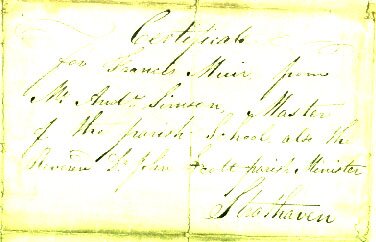 Certificate
for Francis Muir from
Mr Andw Simson, Master
of the parish School also the
Revernd Dr John Scott parish Minister
Strathaven